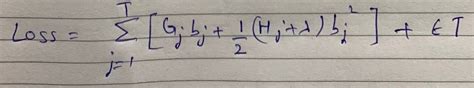 Loss = \sum_{j=1}^{T} [G_j b_j + \frac{1}{2} (H_j + λ) b_j^2] + ϵ T